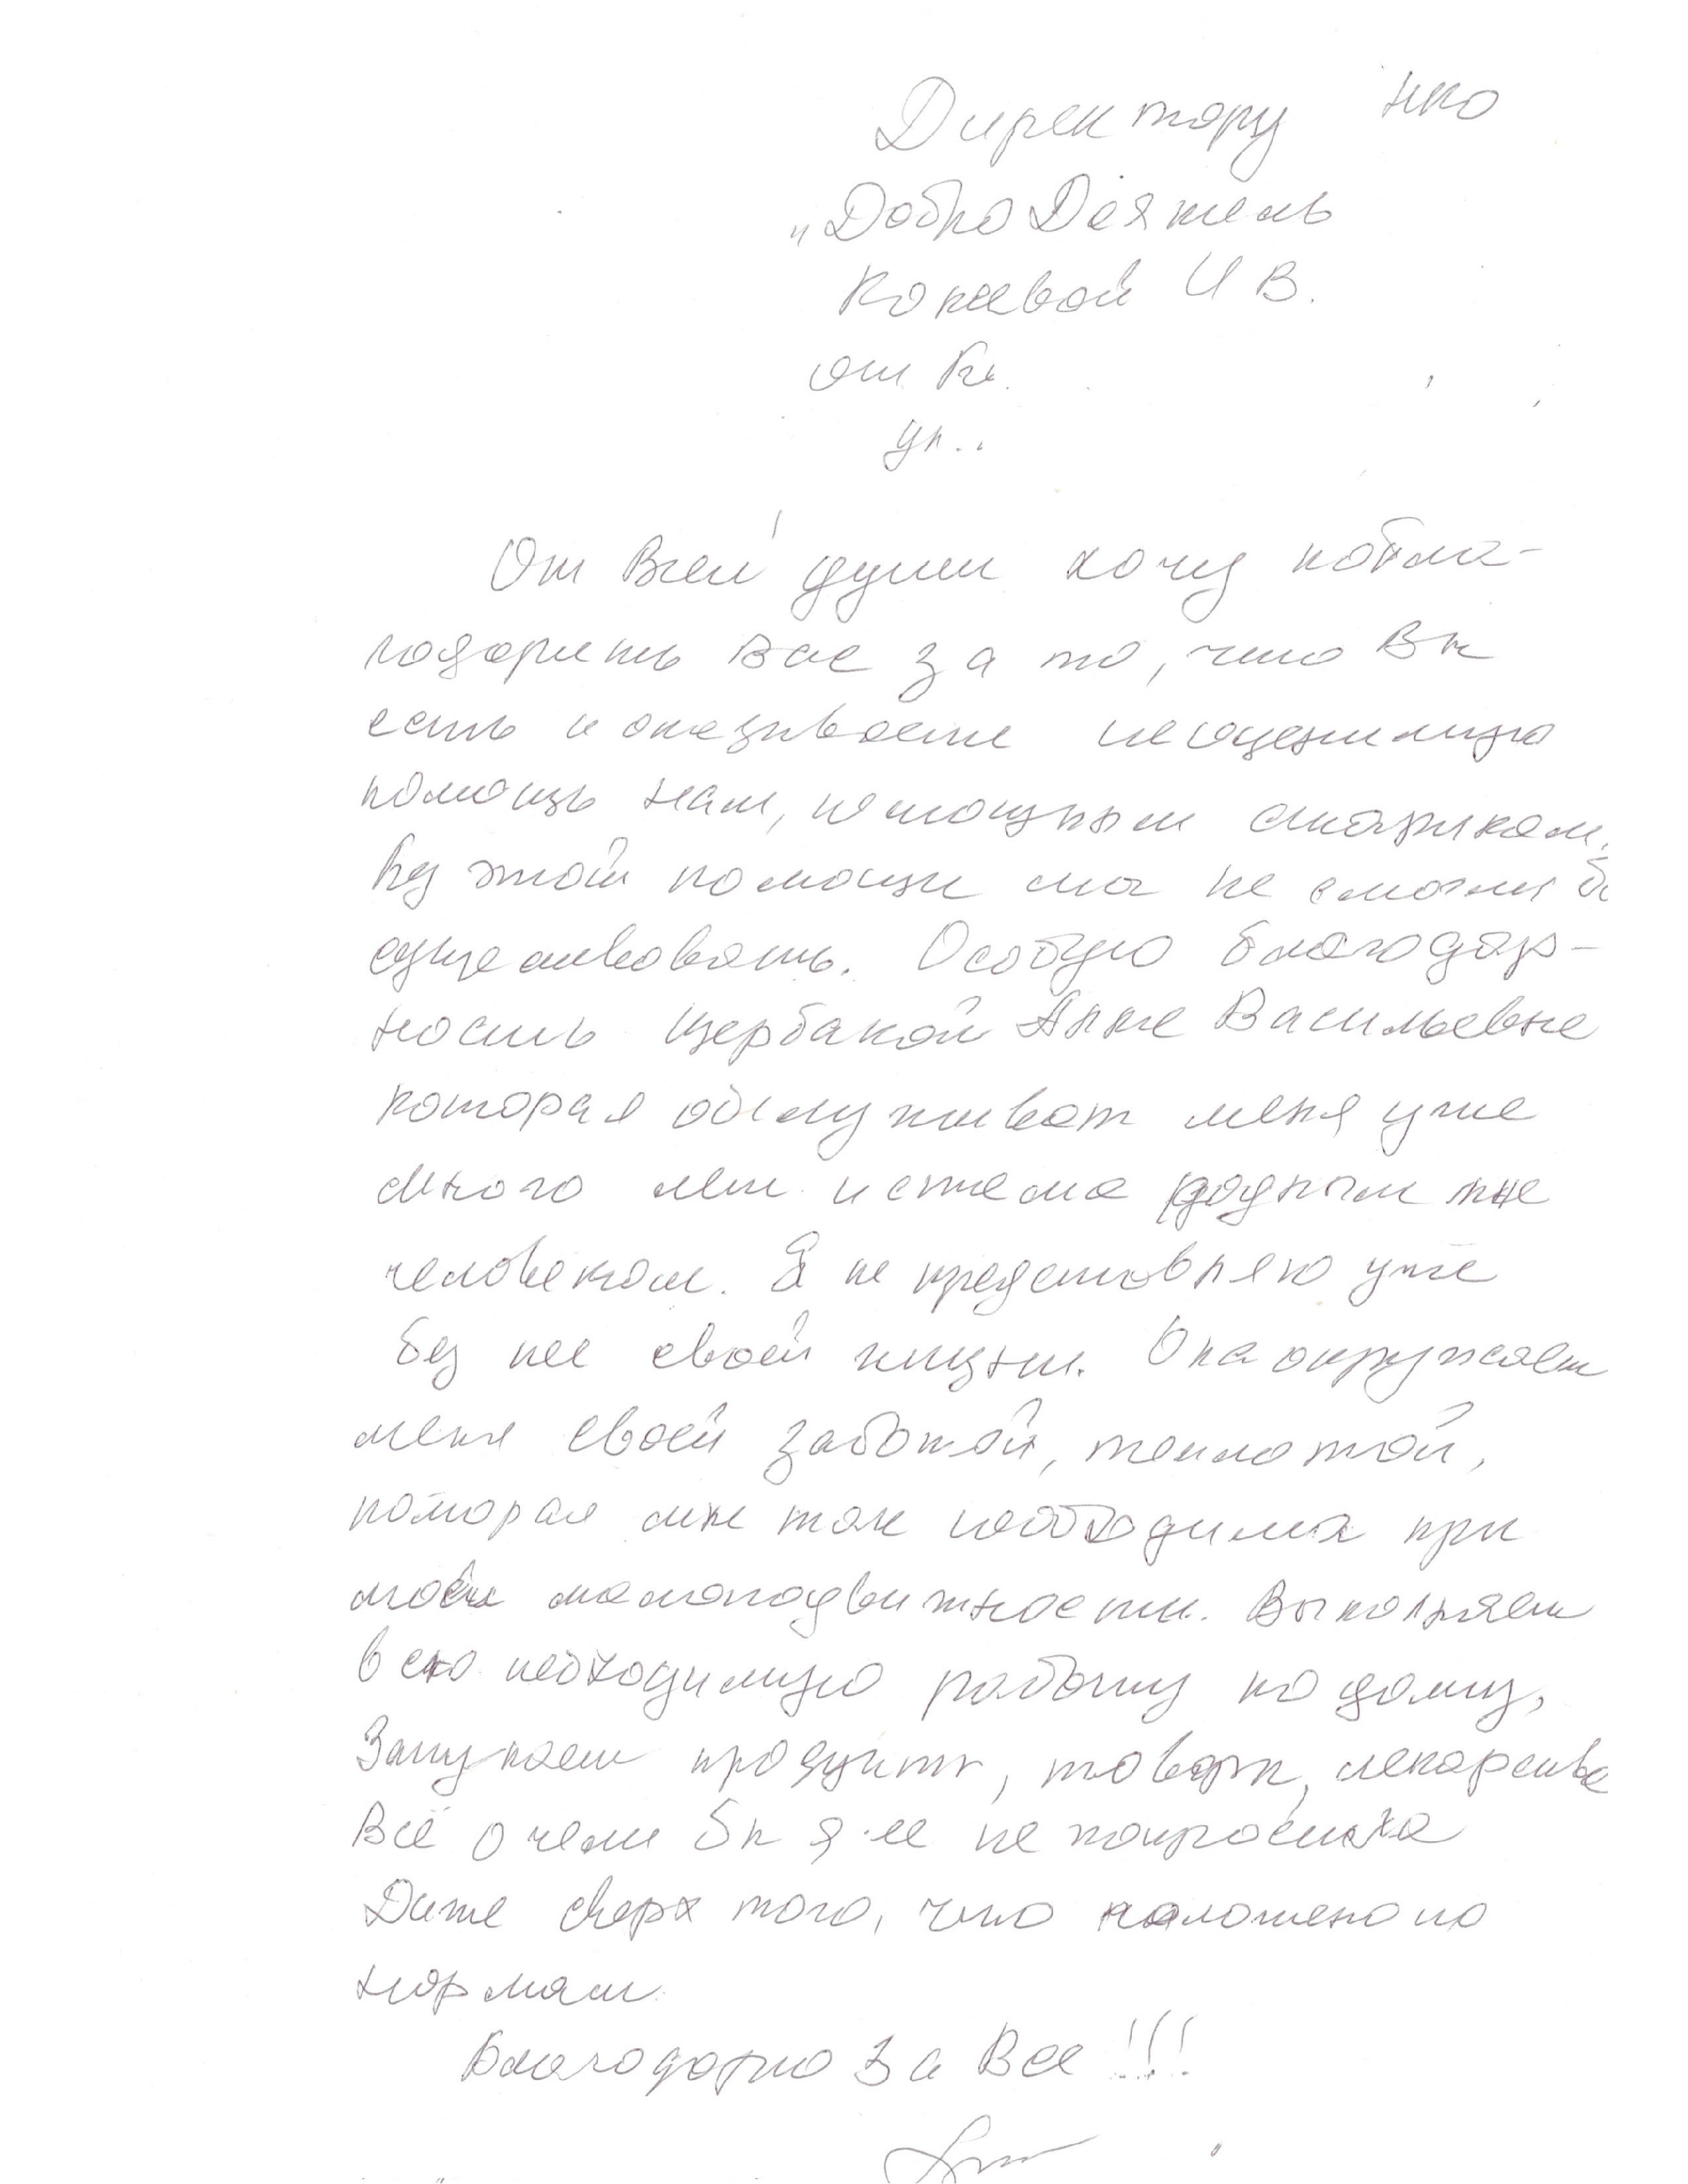 Директору НКО
„ДоброДеятель
Коневой И В.
от
ул..
От Всей души хочу побла-
годарить Вас за то, что Вы
есть и оказываете неоценимую
помощь нам, немощным старикам.
Без этой помощи мы не смогли б
существовать. Особую благодар-
ность Щербакой Анне Васильевне
которая обслуживат меня уже
много лет и стала родным мне
человеком. Я не представляю уже
без нее своей жизни. Она окружает
меня своей заботой, теплотой,
которая мне так необходима при
моей малоподвижности. Выполняет
всю необходимую работу по дому,
Закупает продукты, товары, лекарства
Всё о чем бы я ее не попросила
Даже сверх того, что положено по
нормам.
Благодарю За Все!!!